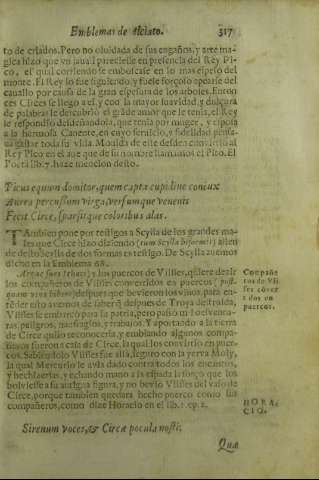 Emblemas de Alciato. 317
to de criados. Pero no oluidada de sus engaños, y arte ma-
gica hizo que vn jauali pareciesse en presencia del Rey Pi-
co, el qual corriendo se emboscase en lo mas espeso del
monte. El Rey lo fue siguiendo, y fuele forçoso apearse del
cauallo por causa de la gran espesura de los arboles. Enton
ces Circes se llegò a el, y con la mayor suauidad, y dulçura
de palabras le descubriò el grãde amor que le tenia, el Rey
le respondio desdeñandola, que tenia por muger, y esposa
a la hermosa Canente, en cuyo seruicio, y fidelidad pensa-
ua gastar toda su vida. Mouida de este desden conuirtio al
Rey Pico en el aue que de su nombre llamamos el Pito. El
Poeta lib. 7. haze mencion desto.
Picus equum domitor, quem capta cupidine coniux
Aurea percussum virga, versumque venenis
Fecit Circe, sparsitque coloribus alas.
TAmbien pone por testigos a Scylla de los grandes ma-
les que Circe hizo diziendo (cum Scylla biformis) allen
de desto Scylla de dos formas es testigo. De Scylla auemos
dicho en la Emblema 68.
y los puercos de Vlisses, quiere dezir
los compañeros de Vlisses conuertidos en puercos
despues que beuieron los vinos. para en-
tender esto auemos de saber q̃ despues de Troya destruida,
Vlisses se embarcò para su patria, pero passò mil desventu-
ras, peligros, naufragios, y trabajos. Y aportando a la tierra
de Circe quiso reconocerla, y embiando algunos compa-
ñeros fueron a casa de Circe, la qual los conuirtio en puer-
cos. Sabiendolo Vlisses fue allà, seguro con la yerua Moly,
la qual Mercurio le auia dado contra todos los encantos,
y hechizerias, y echando mano a la espada la forçò que los
boluiesse a su antigua figura, y no beuio Vlisses del vaso de
Circe, porque tambien quedara hecho puerco como sus
compañeros, como dize Horacio en el lib. 1. ep. 2.
Sirenum voces, & Circæ pocula nosti:
Quæ
Compañe
ros de Vli
sses cõuer
tidos en
puercos.
HORA-
CIO.